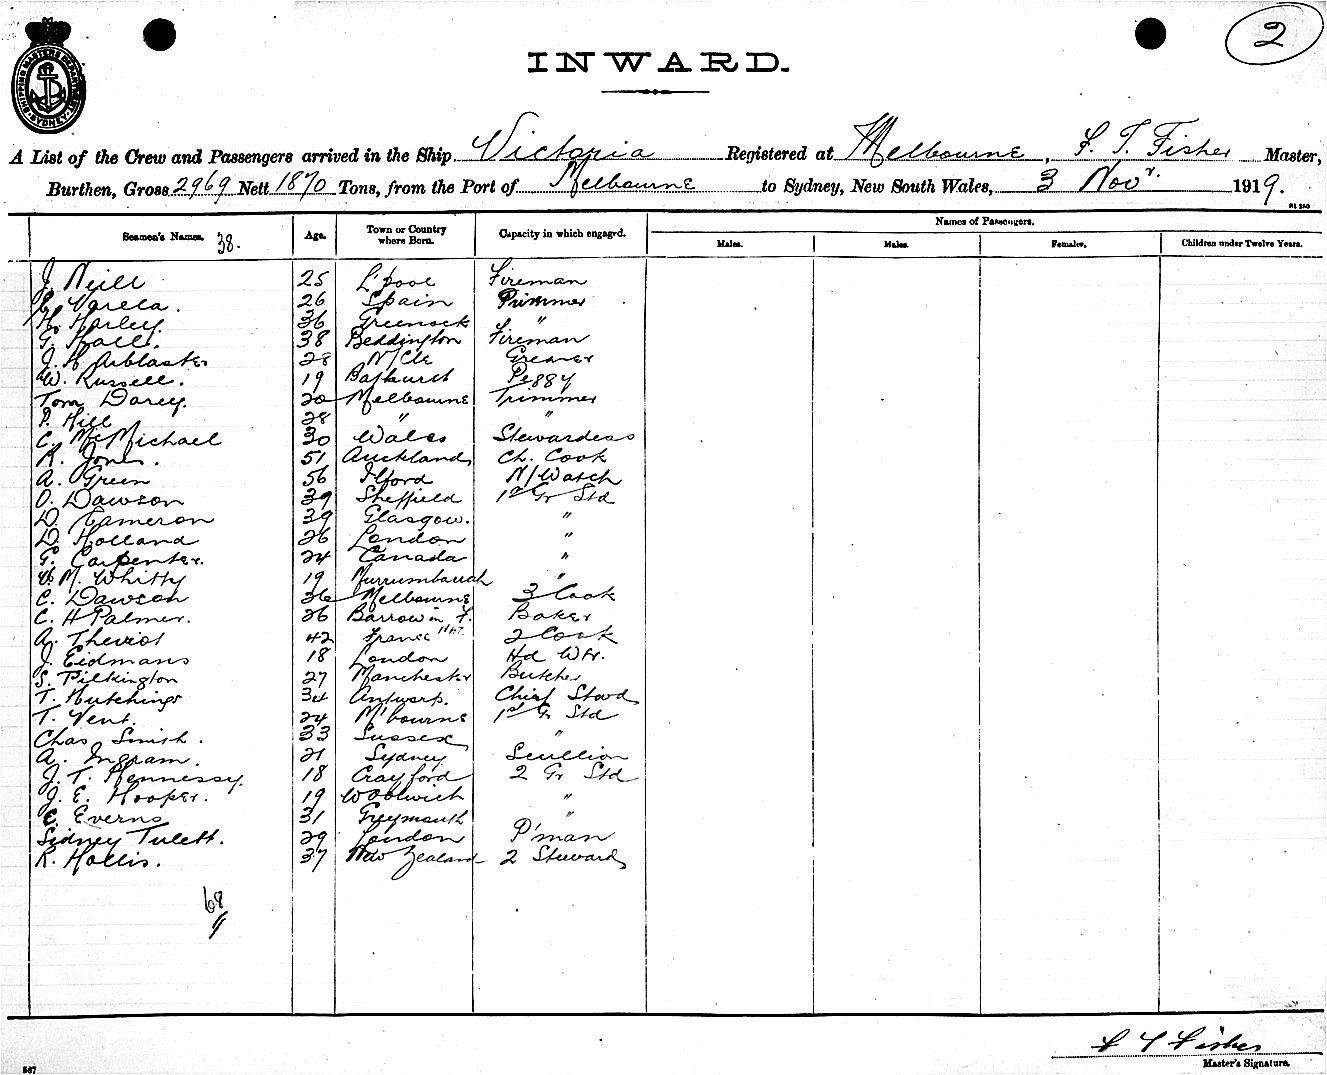 2
SHIPPING MASTERS DEPARTMENT SYDNEY
INWARD.
A List of the Crew and Passengers arrived in the Ship Victoria Registered at Melbourne, F. T. Fisher Master,
Burthen, Gross 2969 Nett 1870 Tons, from the Port of Melbourne to Sydney, New South Wales, 3 Novr. 1919.
Names of Passengers.
Seamen's Names. 38. Age. Town or Country where Born. Capacity in which engaged. Males. Males. Females. Children under Twelve Years.
J. Neill 25 L'pool Fireman
E. Varela. 26 Spain Trimmer
H. Harley. 36 Greenock "
G. Hall. 38 Beddington Fireman
J. H. Arblaster 28 N/Cle Greaser
W. Russell. 19 Bathurst Peggy
Tom Darcy. 20 Melbourne Trimmer
P. Hill 28 " "
C. McMichael 30 Wales Stewardess
R. Jones. 51 Auckland Ch. Cook
A. Green 56 Ilford N/Watch
O. Dawson 39 Sheffield 1st Gr Std
D. Cameron 39 Glasgow. "
D. Holland 26 London "
G. Carpenter. 24 Canada "
M. Whitty 19 Murrumburrah "
C. Dawson 36 Melbourne 3 Cook
C. H Palmer. 26 Barrow in F. Baker
A. Theviot 42 France 2 Cook
J. Eidmans 18 London Hd Wtr.
S. Pilkington 27 Manchester Butcher
T. Hutchings 34 Antwerp. Chief Stwd
T. Vent. 24 M'bourne 1st Gr Std
Chas Smith. 33 Sussex "
A. Ingram. 21 Sydney Scullion
J. T. Hennessy. 18 Crayford 2 Gr Std
J. E. Hooper. 19 Woolwich "
E. Everns 31 Greymouth "
Sidney Tulett. 29 London P'man
R. Hollis. 37 New Zealand 2 Steward
68
F T Fisher
Master's Signature.
587